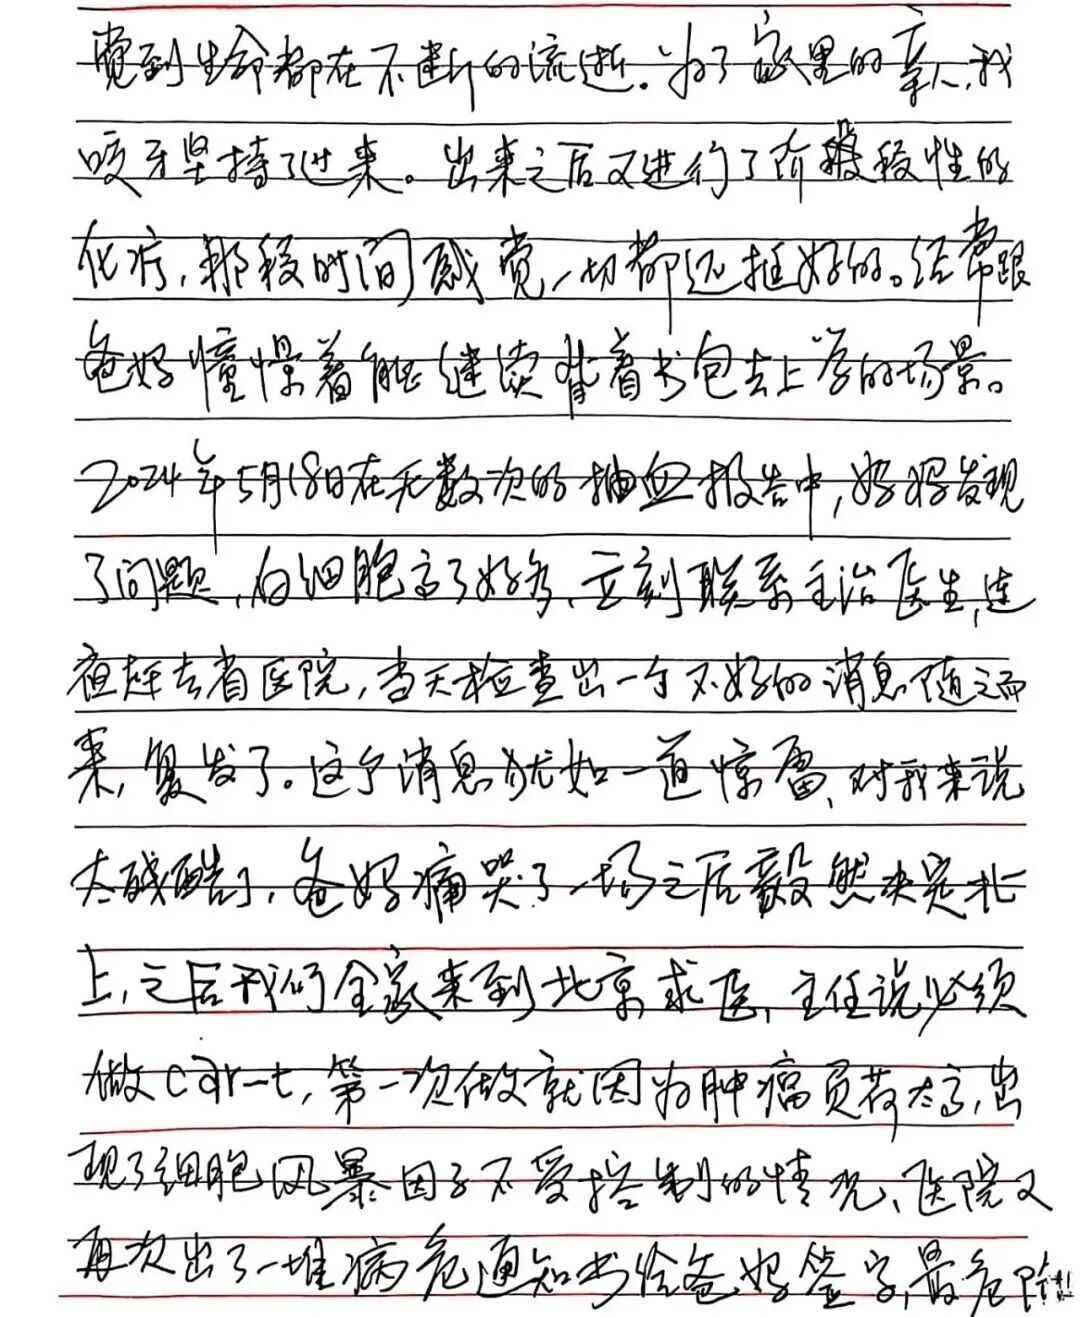 觉到生命都在不断的流逝。为了家里的亲人，我
咬牙坚持了过来。出来之后又进行了阶段性的
化疗，那段时间感觉一切都还挺好的。经常跟
爸妈憧憬着能继续背着书包去上学的场景。
2024年5月18日在无数次的抽血报告中，妈妈发现
了问题，白细胞高了好多，立刻联系主治医生，连
夜赶去省医院，当天检查出一个不好的消息随之而
来，复发了。这个消息犹如一道惊雷，对我来说
太残酷了，爸妈痛哭了一场之后毅然决定北
上，之后我们全家来到北京求医，主任说必须
做car-t，第一次做就因为肿瘤负荷太高，出
现了细胞风暴因子不受控制的情况，医院又
再次出了一堆病危通知书给爸妈签字，最危险